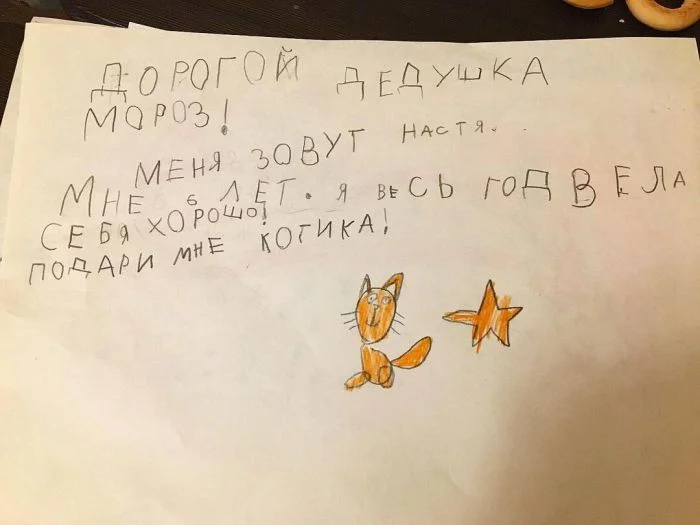 ДОРОГОЙ ДЕДУШКА
МОРОЗ!
МЕНЯ ЗОВУТ НАСТЯ.
МНЕ 6 ЛЕТ. Я ВЕСЬ ГОД ВЕЛА
СЕБЯ ХОРОШО!
ПОДАРИ МНЕ КОТИКА!